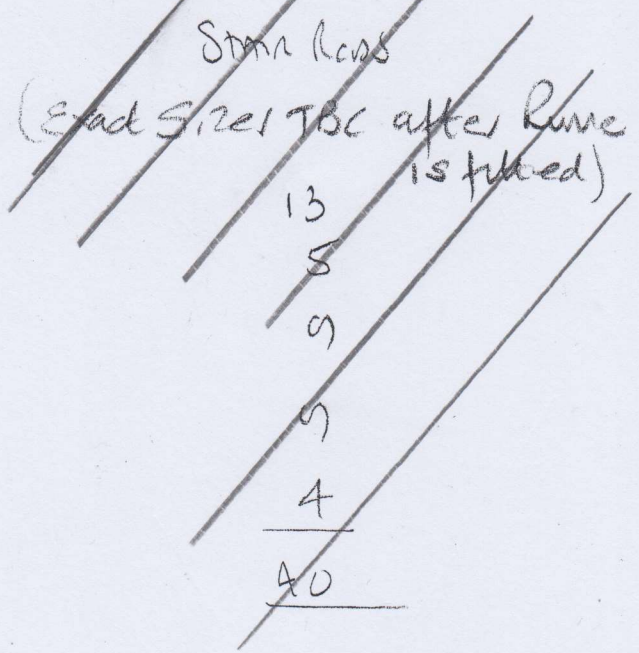 Stair Rods
(Exact Sizes TBC after
is fitted)
13
5
9
9
4
40